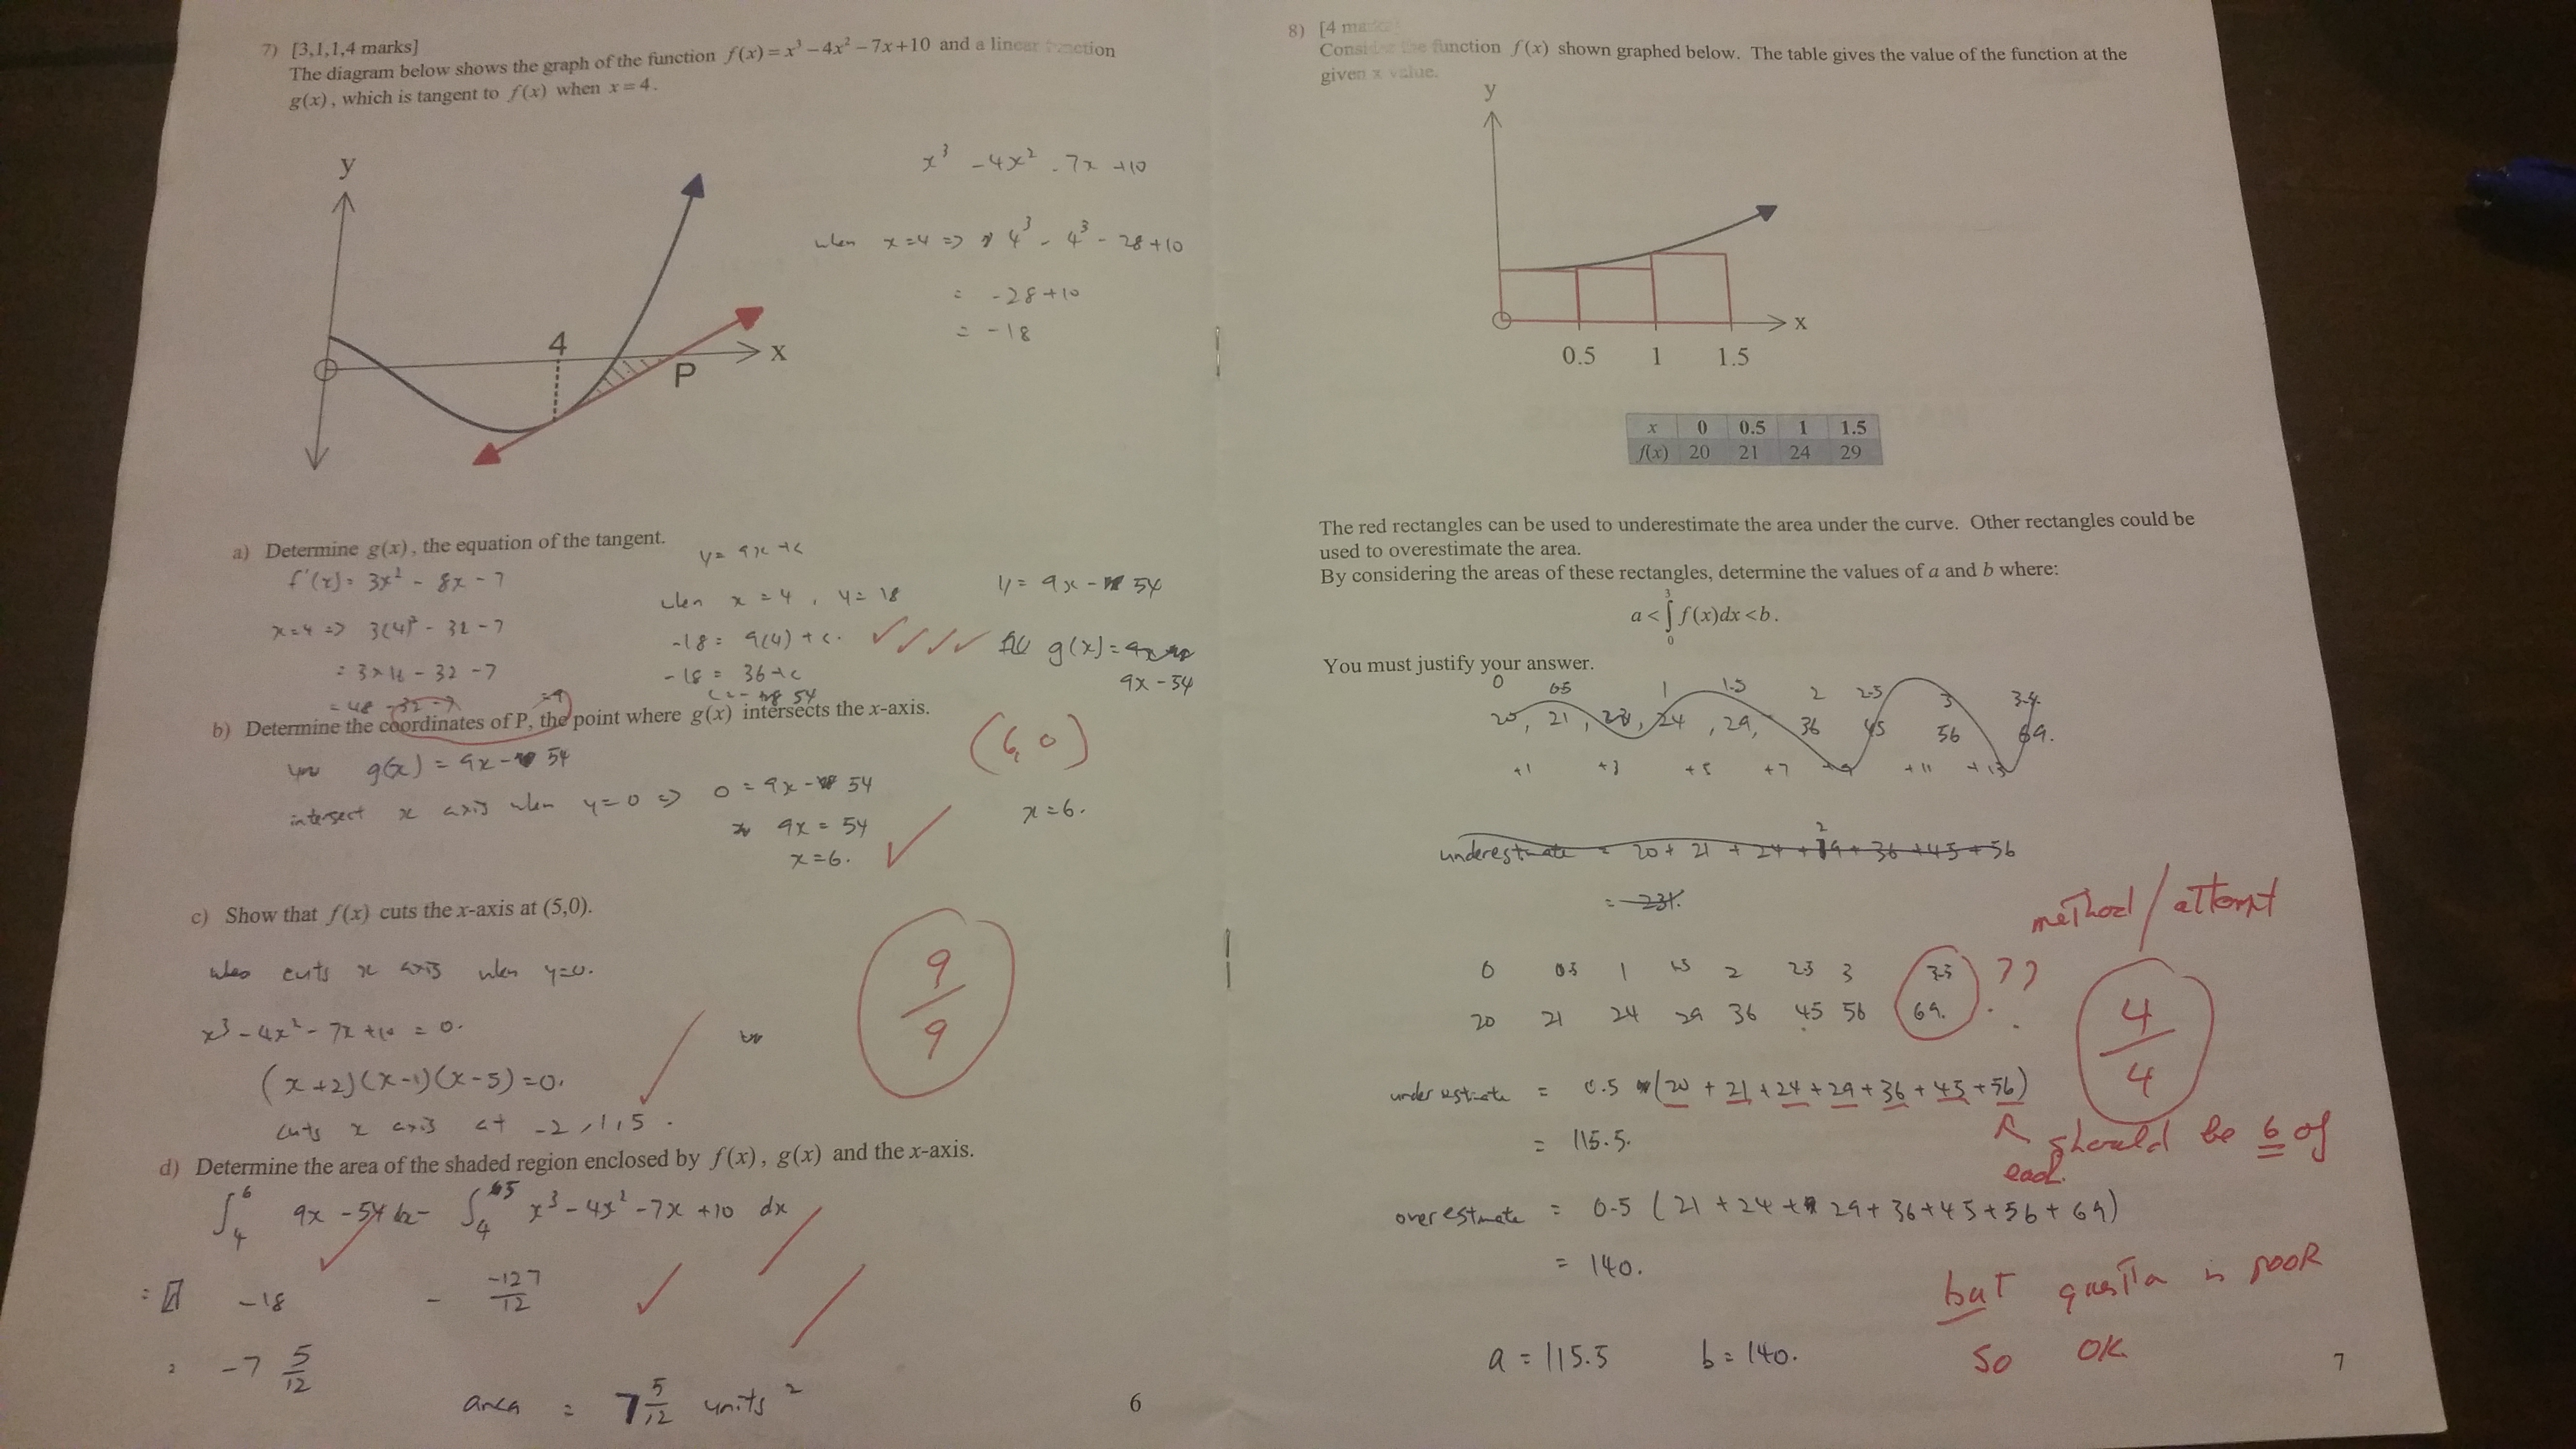 7) [3,1,1,4 marks]
The diagram below shows the graph of the function f(x) = x³ − 4x² − 7x + 10 and a linear function
g(x), which is tangent to f(x) when x = 4.
y
4
x
P
x³ - 4x² - 7x + 10
when x = 4 => 4³ - 4³ - 28 + 10
= -28 + 10
= -18
a) Determine g(x), the equation of the tangent.
f'(x) = 3x² - 8x - 7
x = 4 => 3(4)² - 32 - 7
= 3 × 16 - 32 - 7
= 48 - 32 - 7 = 9
y = 9x + c
when x = 4, y = 18
-18 = 9(4) + c.
-18 = 36 + c
c = - 54
y = 9x - 54
g(x) =
9x - 54
b) Determine the coordinates of P, the point where g(x) intersects the x-axis.
g(x) = 9x - 54
intersect x axis when y = 0 => 0 = 9x - 54
9x = 54
x = 6.
(6, 0)
x = 6.
c) Show that f(x) cuts the x-axis at (5,0).
cuts x axis when y = 0.
x³ - 4x² - 7x + 10 = 0.
(x + 2)(x - 1)(x - 5) = 0.
cuts x axis at -2, 1, 5.
9/9
d) Determine the area of the shaded region enclosed by f(x), g(x) and the x-axis.
∫₄⁶ 9x - 54 dx - ∫₄⁵ x³ - 4x² - 7x + 10 dx
= -18 - -127/12
= -7 5/12
area = 7 5/12 units²
6
8) [4 marks]
Consider the function f(x) shown graphed below. The table gives the value of the function at the
given x value.
y
x
0.5 1 1.5
x 0 0.5 1 1.5
f(x) 20 21 24 29
The red rectangles can be used to underestimate the area under the curve. Other rectangles could be
used to overestimate the area.
By considering the areas of these rectangles, determine the values of a and b where:
a < ∫₀³ f(x)dx < b.
You must justify your answer.
0 0.5 1 1.5 2 2.5 3 3.5
20, 21, 24, 29, 36 45 56 69.
+1 +3 +5 +7 +9 +11 +13
underestimate = 20 + 21 + 24 + 29 + 36 + 45 + 56
= 231.
method / attempt
0 0.5 1 1.5 2 2.5 3 3.5 ??
20 21 24 29 36 45 56 69.
4/4
under estimate = 0.5 (20 + 21 + 24 + 29 + 36 + 45 + 56)
= 115.5.
should be 6 of
each.
over estimate = 0.5 (21 + 24 + 29 + 36 + 45 + 56 + 69)
= 140.
but is poor
so OK
a = 115.5 b = 140.
7